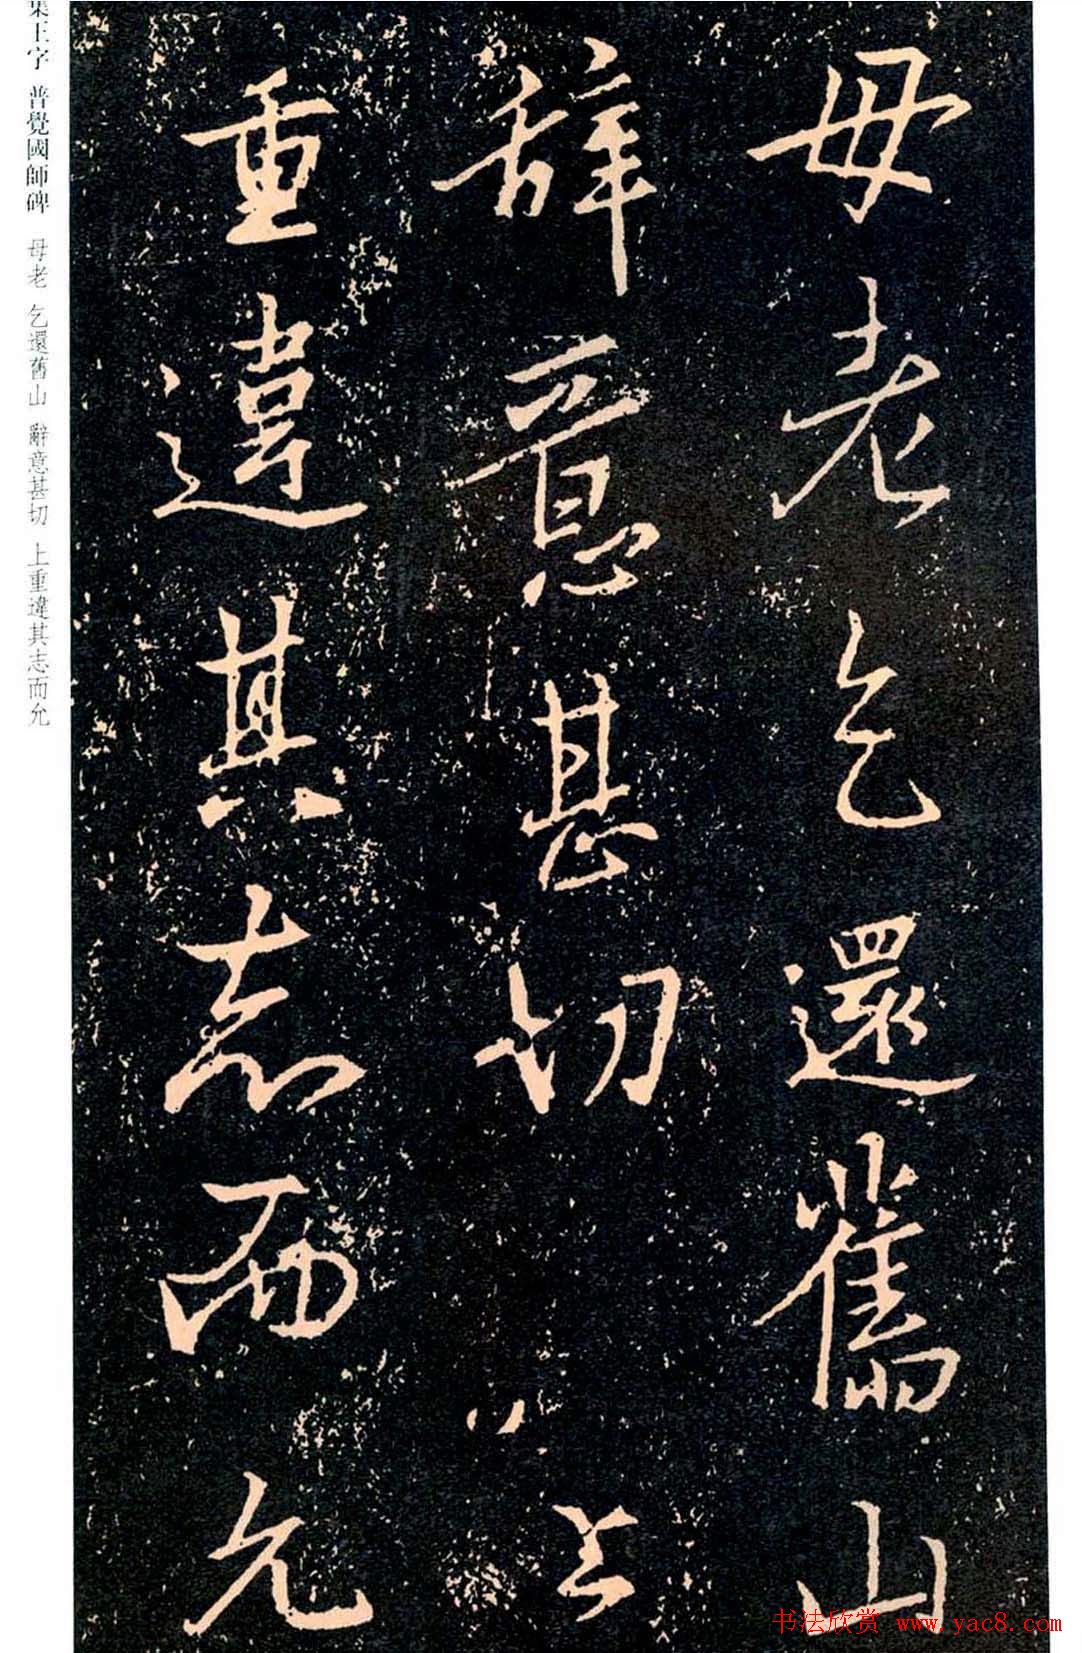 母老乞還舊山
辭意甚切上
重違其志而允
集王字 普覺國師碑 母老 乞還舊山 辭意甚切 上重違其志而允
书法欣赏 www.yac8.com